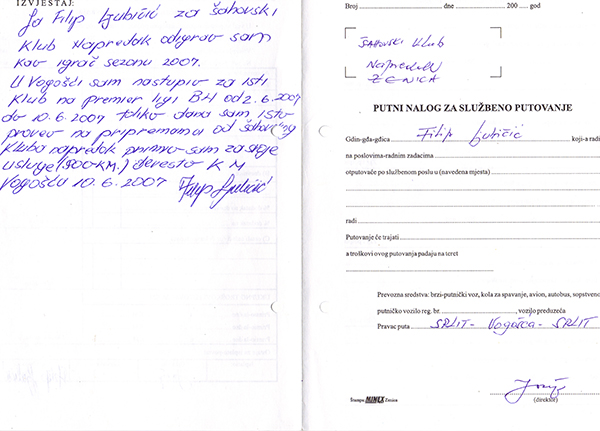 IZVJEŠTAJ:
Ja Filip Ljubičić za šahovski
Klub Napredak odigrao sam
kao igrač sezonu 2007.
U Vogošći sam nastupio za isti
klub na premier ligi BH od 2.6.2007
do 10.6.2007 toliko dana sam isto
proveo na pripremama od šahovskog
kluba napredak primio sam za svoje
usluge (900-KM.) devesto KM
Vogošća 10.6.2007 Filip Ljubičić
Broj dne 200 god
ŠAHOVSKI KLUB
NAPREDAK
ZENICA
PUTNI NALOG ZA SLUŽBENO PUTOVANJE
Gdin-gđa-gđica Filip Ljubičić koji-a radi
na poslovima-radnim zadacima
otputovaće po službenom poslu u (navedena mjesta)
radi
Putovanje će trajati
a troškovi ovog putovanja padaju na teret
Prevozna sredstva: brzi-putnički voz, kola za spavanje, avion, autobus, sopstveno
putničko vozilo reg. br. , vozilo preduzeća
Pravac puta SPLIT - Vogošća - SPLIT
(direktor)
Štampa MINEX Zenica